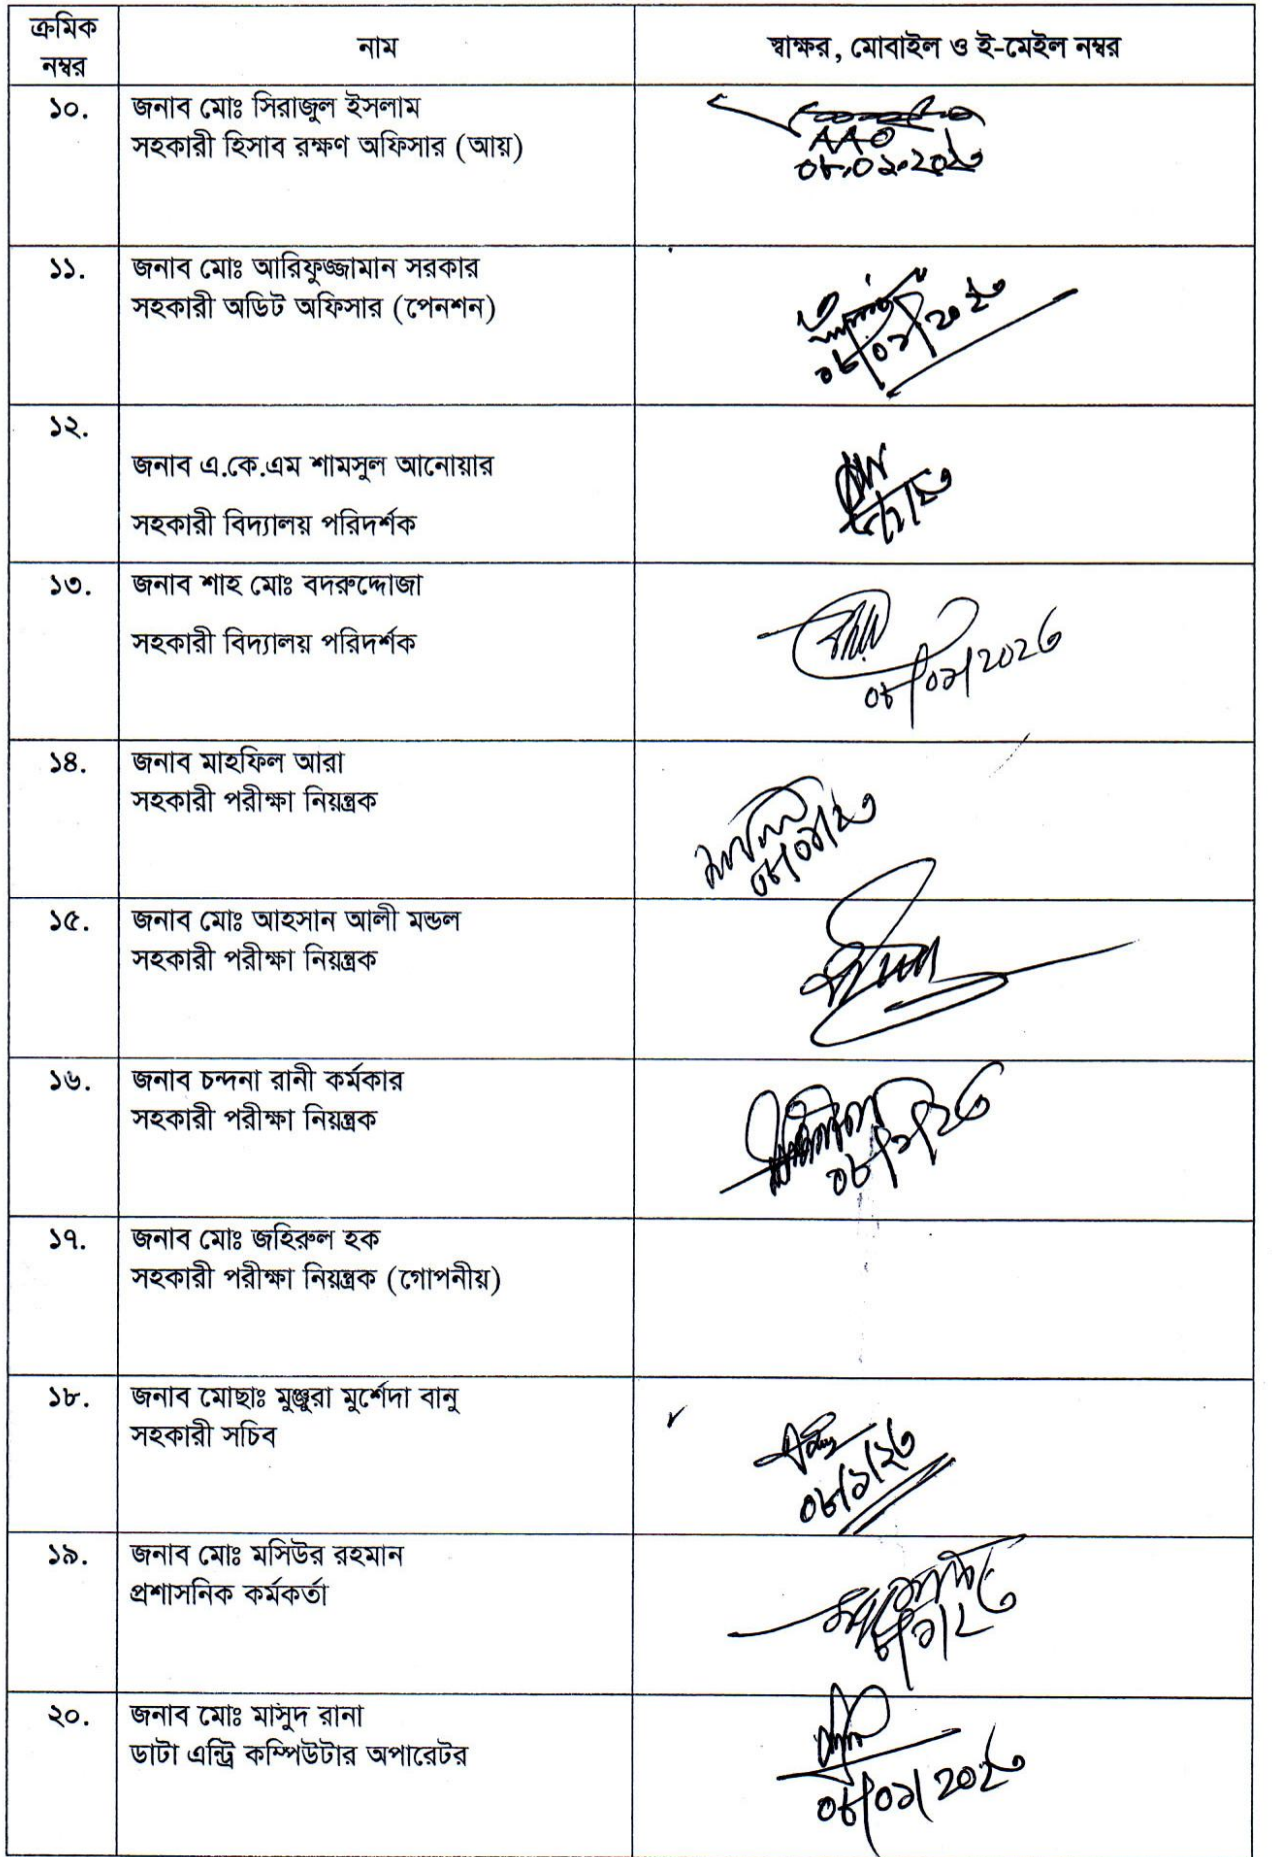 ক্রমিক
নম্বর
নাম
স্বাক্ষর, মোবাইল ও ই-মেইল নম্বর
১০.
জনাব মোঃ সিরাজুল ইসলাম
সহকারী হিসাব রক্ষণ অফিসার (আয়)
AAO
০৮.০১.২০২৩
১১.
জনাব মোঃ আরিফুজ্জামান সরকার
সহকারী অডিট অফিসার (পেনশন)
০৮/০১/২০২৩
১২.
জনাব এ.কে.এম শামসুল আনোয়ার
সহকারী বিদ্যালয় পরিদর্শক
১৩.
জনাব শাহ মোঃ বদরুদ্দোজা
সহকারী বিদ্যালয় পরিদর্শক
০৮/০১/২০২৩
১৪.
জনাব মাহফিল আরা
সহকারী পরীক্ষা নিয়ন্ত্রক
০৮/০১/২৩
১৫.
জনাব মোঃ আহসান আলী মন্ডল
সহকারী পরীক্ষা নিয়ন্ত্রক
১৬.
জনাব চন্দনা রানী কর্মকার
সহকারী পরীক্ষা নিয়ন্ত্রক
০৮/১/২৩
১৭.
জনাব মোঃ জহিরুল হক
সহকারী পরীক্ষা নিয়ন্ত্রক (গোপনীয়)
১৮.
জনাব মোছাঃ মুঞ্জুরা মুর্শেদা বানু
সহকারী সচিব
০৮/১/২৩
১৯.
জনাব মোঃ মসিউর রহমান
প্রশাসনিক কর্মকর্তা
২০.
জনাব মোঃ মাসুদ রানা
ডাটা এন্ট্রি কম্পিউটার অপারেটর
০৮/০১/২০২৩